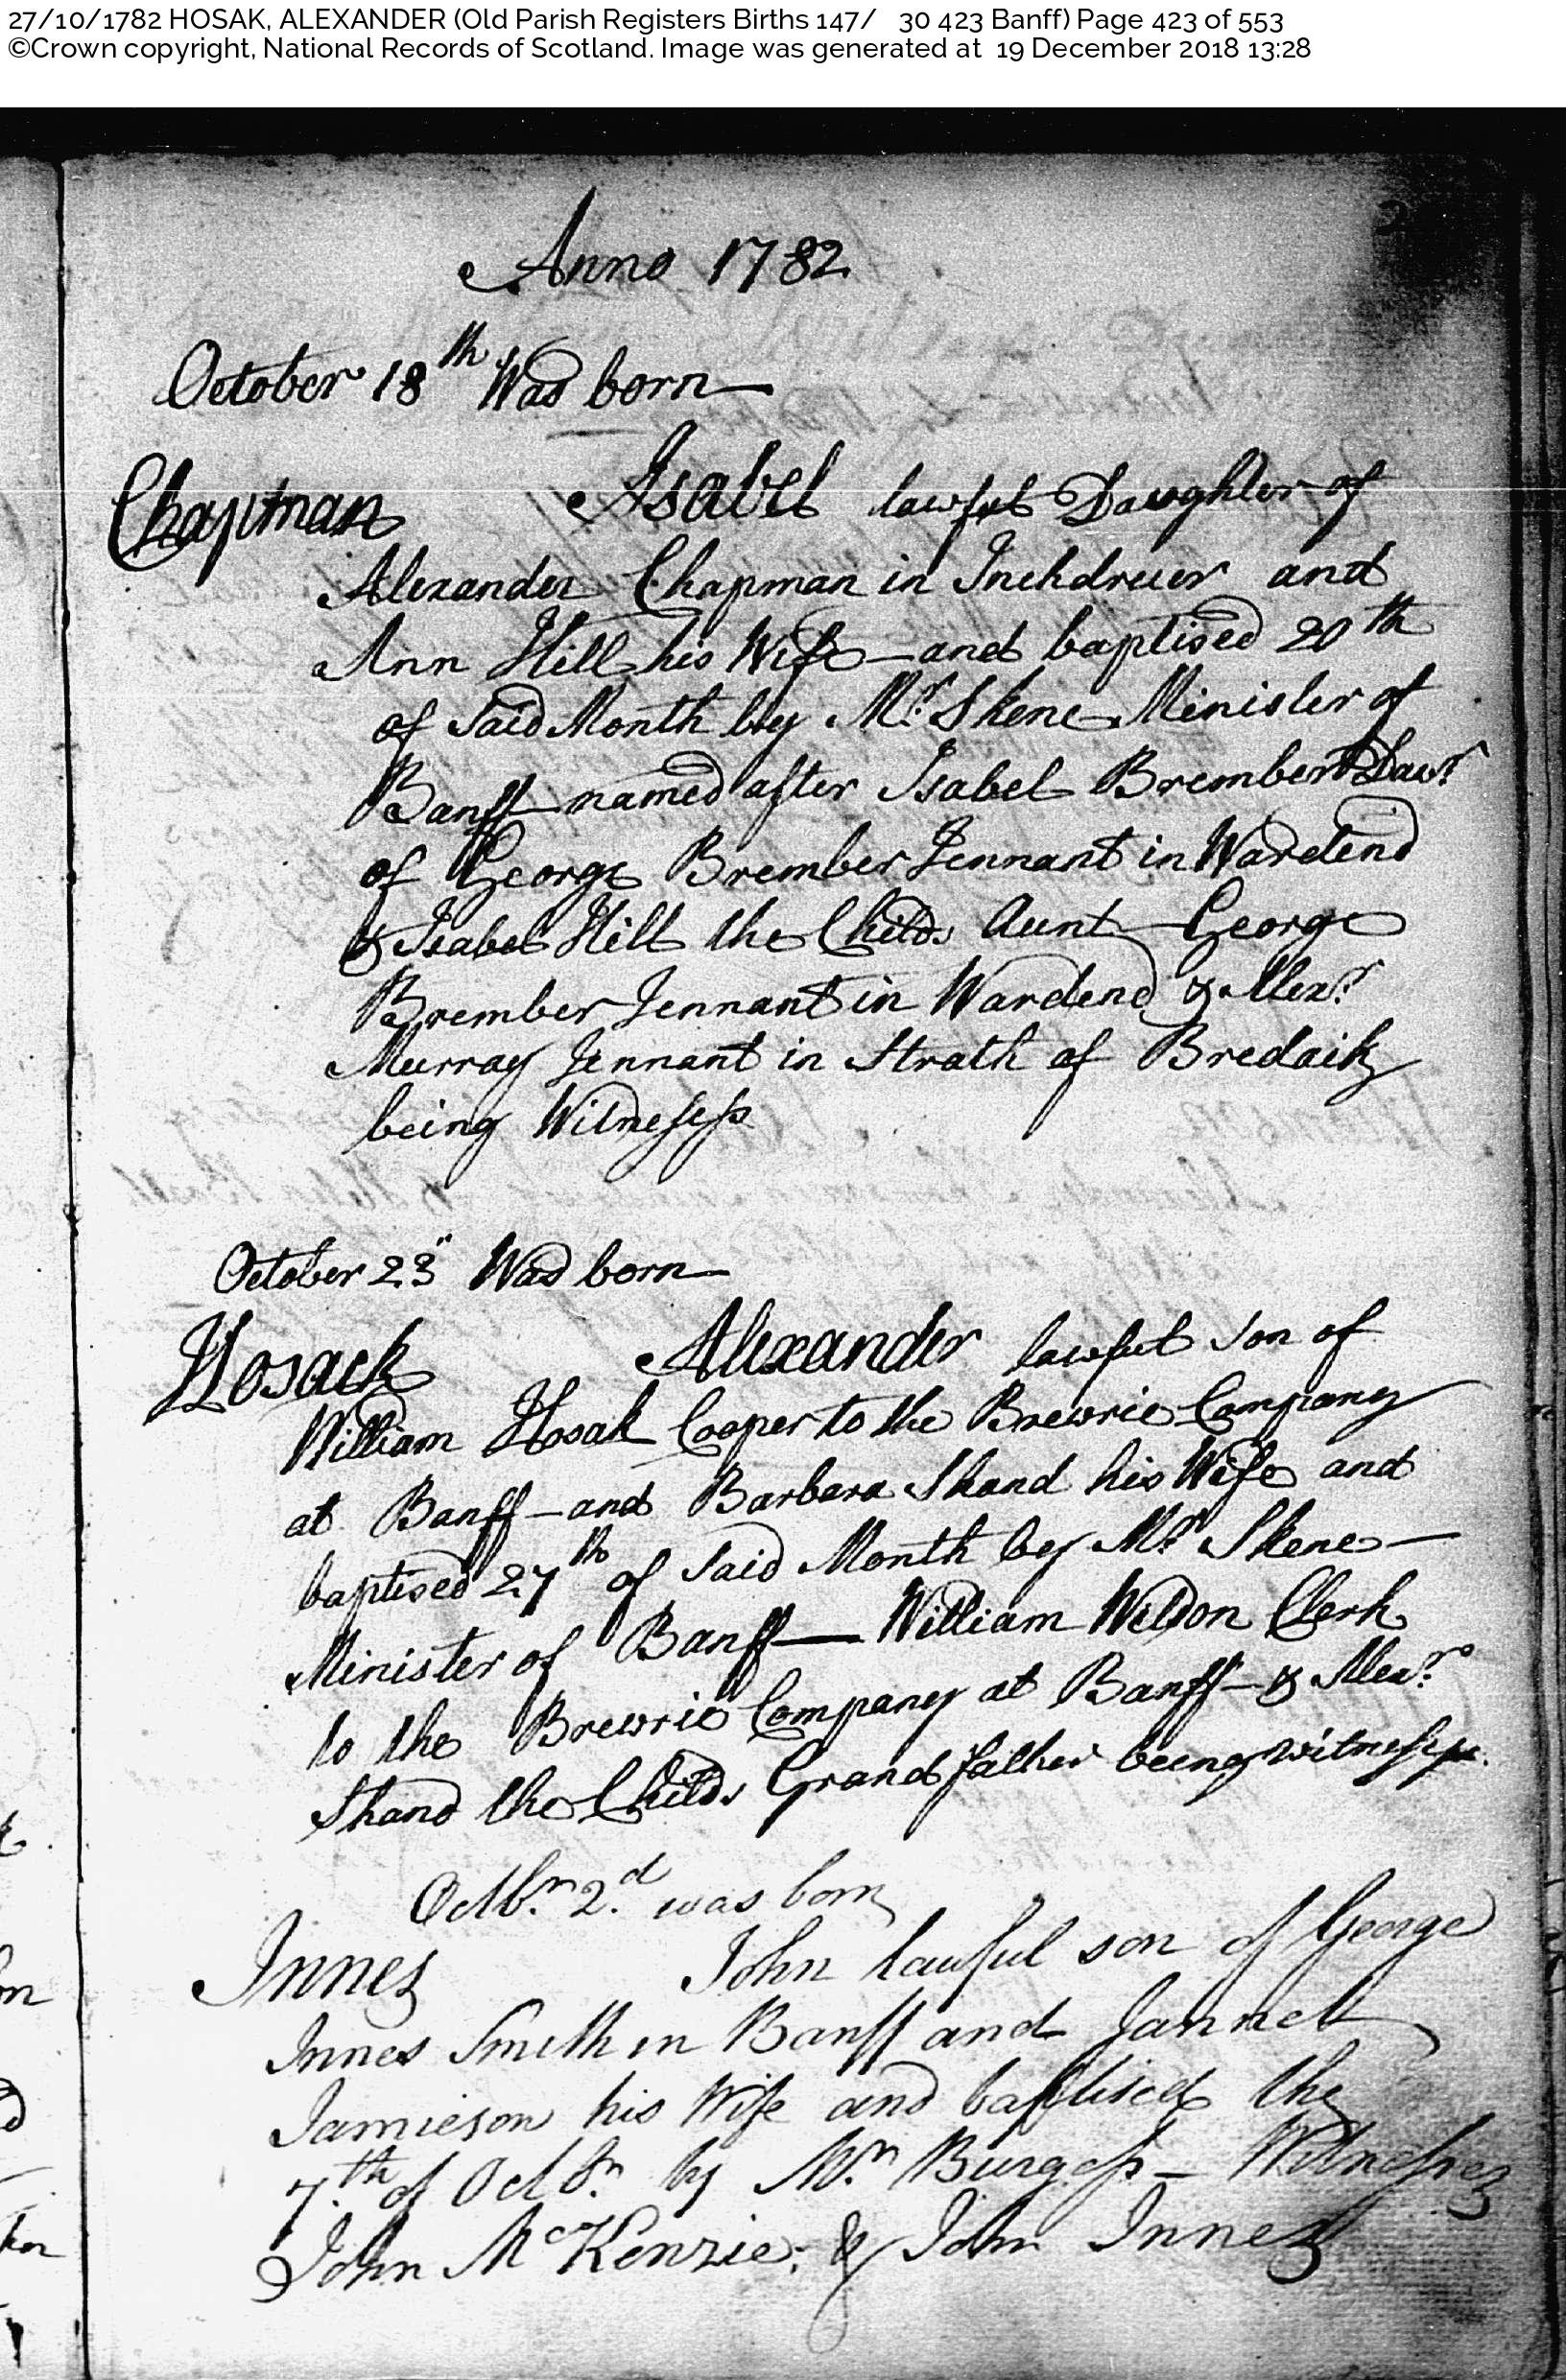 27/10/1782 HOSAK, ALEXANDER (Old Parish Registers Births 147/ 30 423 Banff) Page 423 of 553
©Crown copyright, National Records of Scotland. Image was generated at 19 December 2018 13:28
Anno 1782
October 18th Was born
Chapman Isabel lawful Daughter of
Alexander Chapman in Inchdrewer and
Ann Hill his Wife - and baptised 20th
of Said Month by Mr. Skene Minister of
Banff named after Isabel Brember Dawr.
of George Brember Tennant in Wardend
& Isabel Hill the Childs Aunt - George
Brember Tennant in Wardend & Alexr.
Murray Tennant in Strath of
being Witnesess
October 23" Was born
Hosack Alexander lawful Son of
William Hosak Cooper to the Brewrie Company
at Banff - and Barbara Shand his Wife and
baptised 27th of Said Month by Mr. Skene -
Minister of Banff - William Weldon Clerk
to the Brewrie Company at Banff - & Alexr.
Shand the Childs Grandfather being witnesses
Octbr. 2d. was born
Innes John lawful son of George
Innes Smith in Banff and Jannet
Jamieson his Wife and baptised the
7th. of Octbr. by Mr. Burgess - Witnesses
John McKenzie. & John Innes